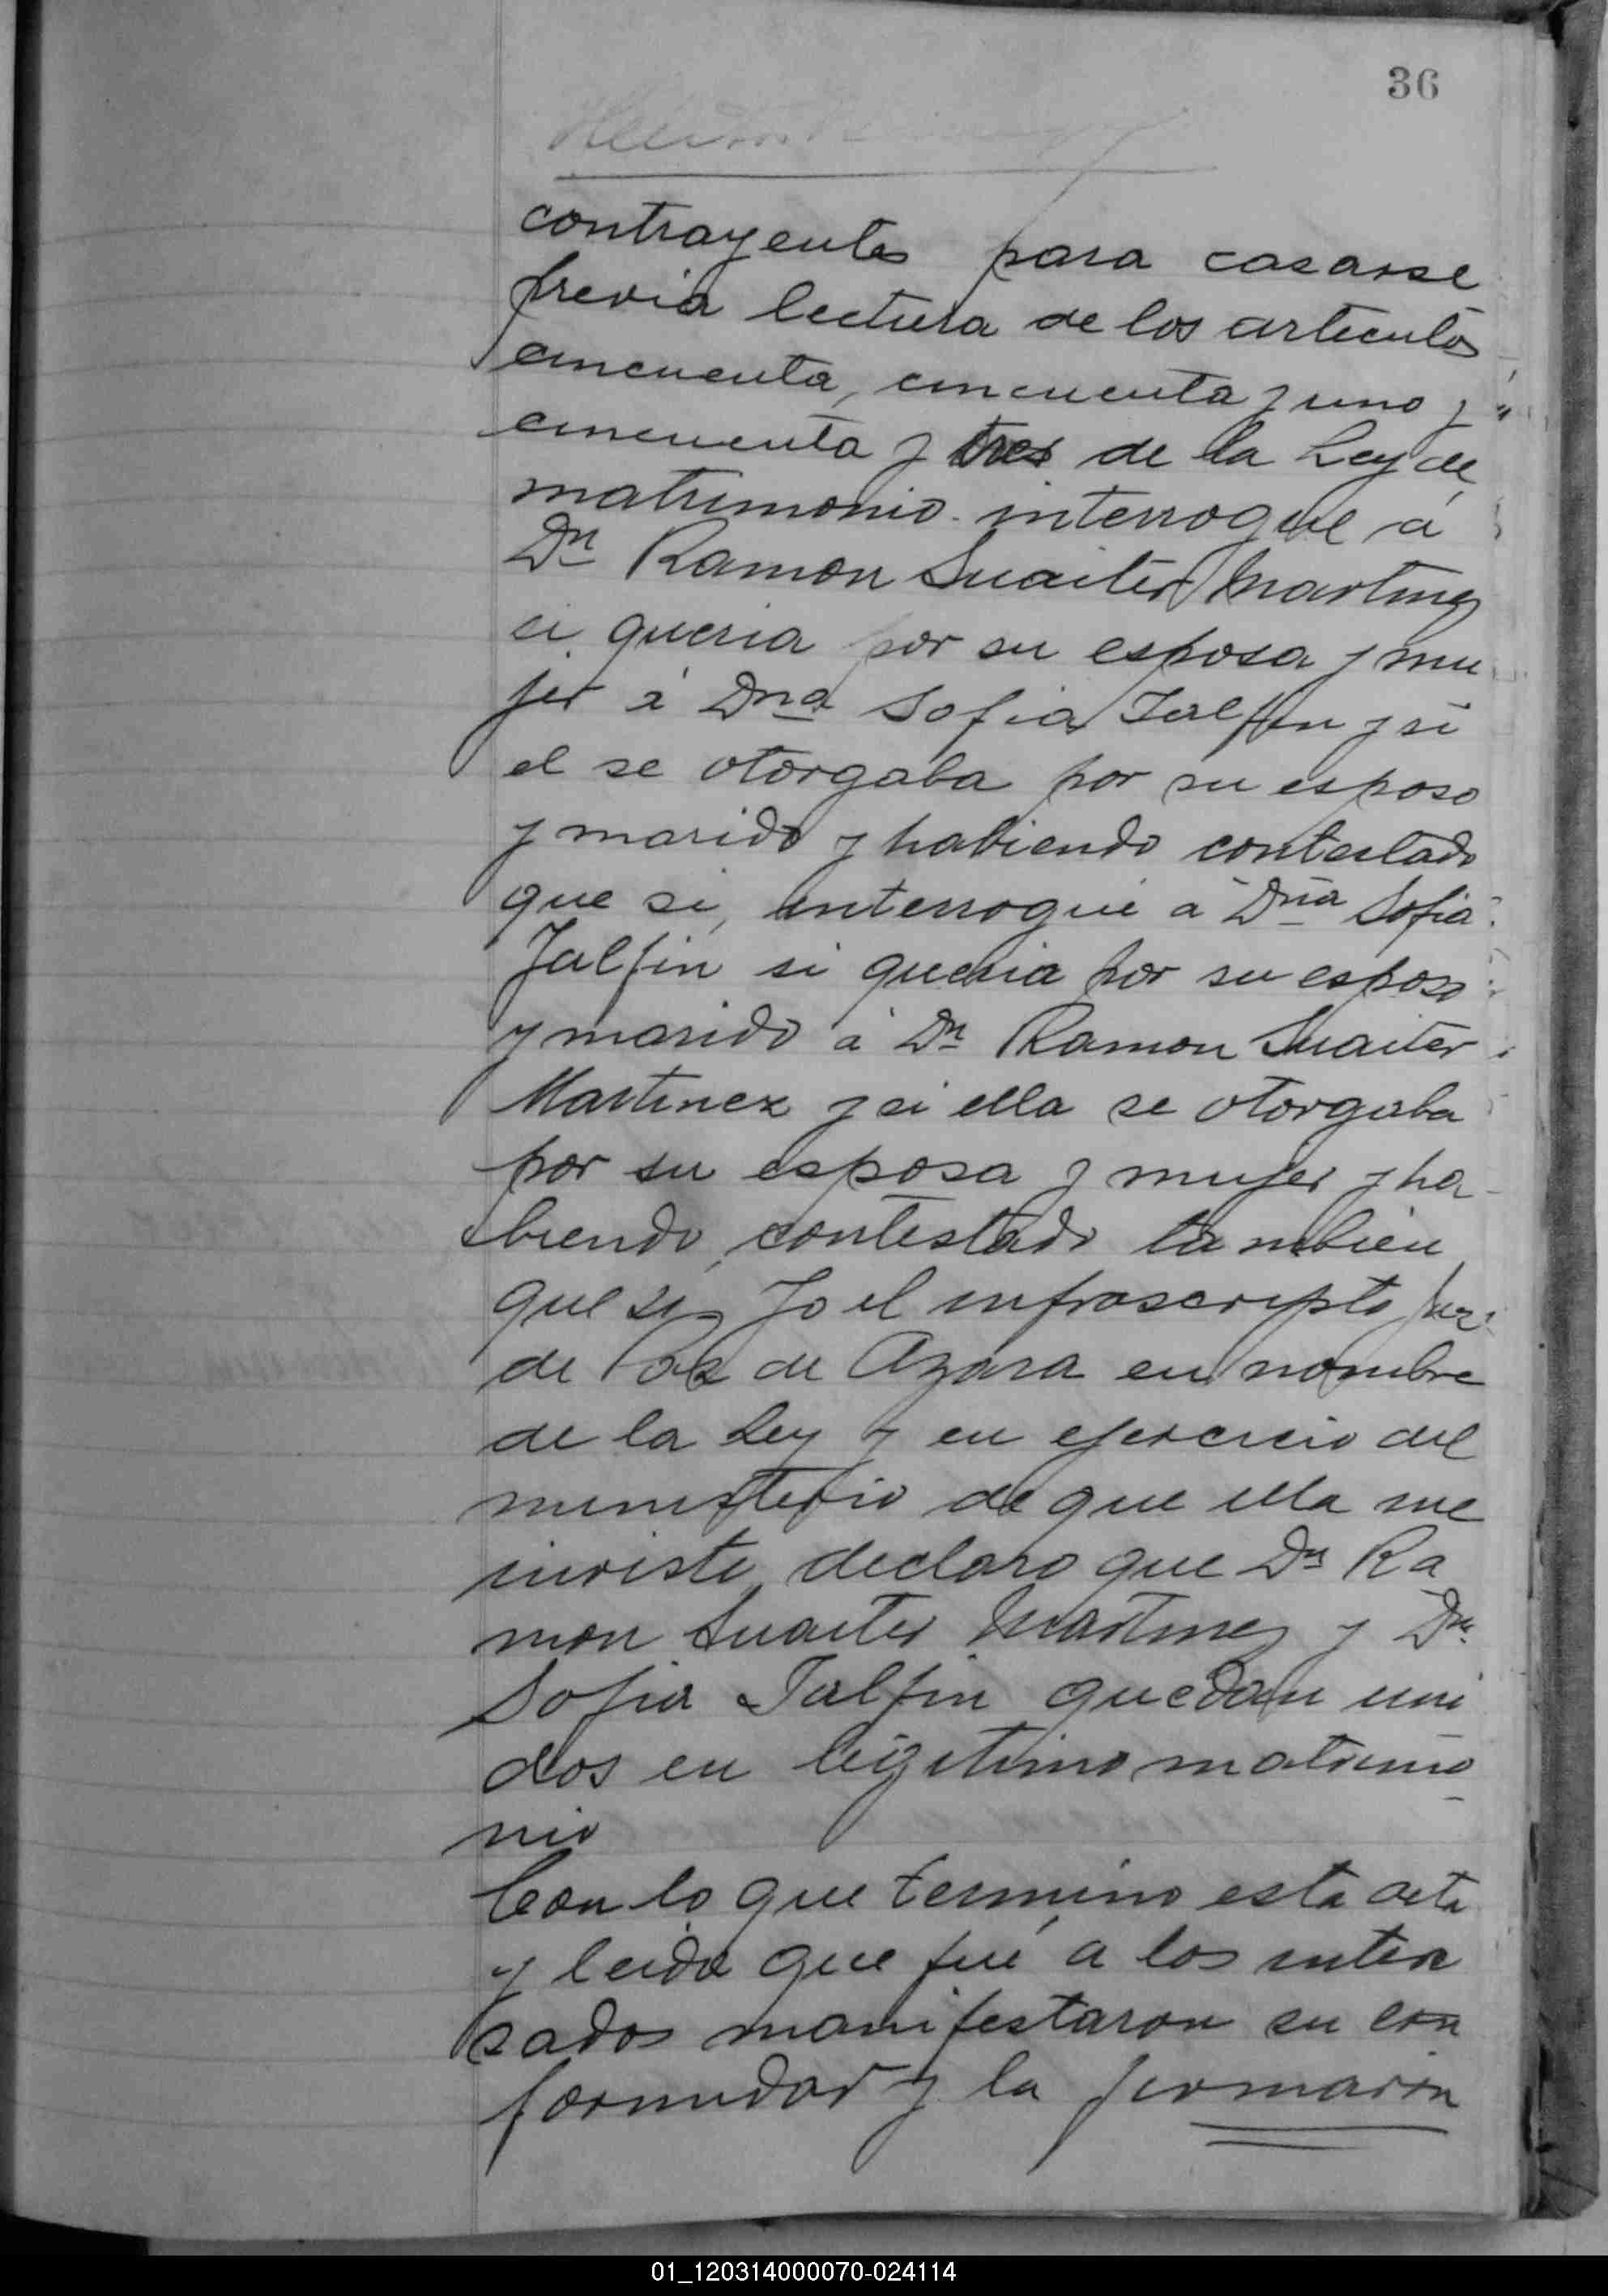 36
contrayentes para casarse
previa lectura de los articulos
cincuenta, cincuenta y uno y
cincuenta y tres de la Ley de
matrimonio interrogué á
Dn Ramon Suaiter Martinez
si queria por su esposa y mu
jer á Dna Sofia Jalfin y si
el se otorgaba por su esposo
y marido y habiendo contestado
que si, interrogué a Dña Sofia
Jalfin si queria por su esposo
y marido á Dn Ramon Suaiter
Martinez y si ella se otorgaba
por su esposa y mujer y ha-
biendo contestado tambien
que si, Yo el infrascripto Juez
de Paz de Azara en nombre
de la Ley y en ejercicio del
ministerio de que ella me
inviste, declaro que Dn Ra
mon Suaiter Martinez y Dna
Sofia Jalfin quedan uni
dos en legitimo matrimo
nio
Con lo que termino esta acta
y leida que fué a los intere
sados manifestaron su con
formidad y la firmaron
01_120314000070-024114